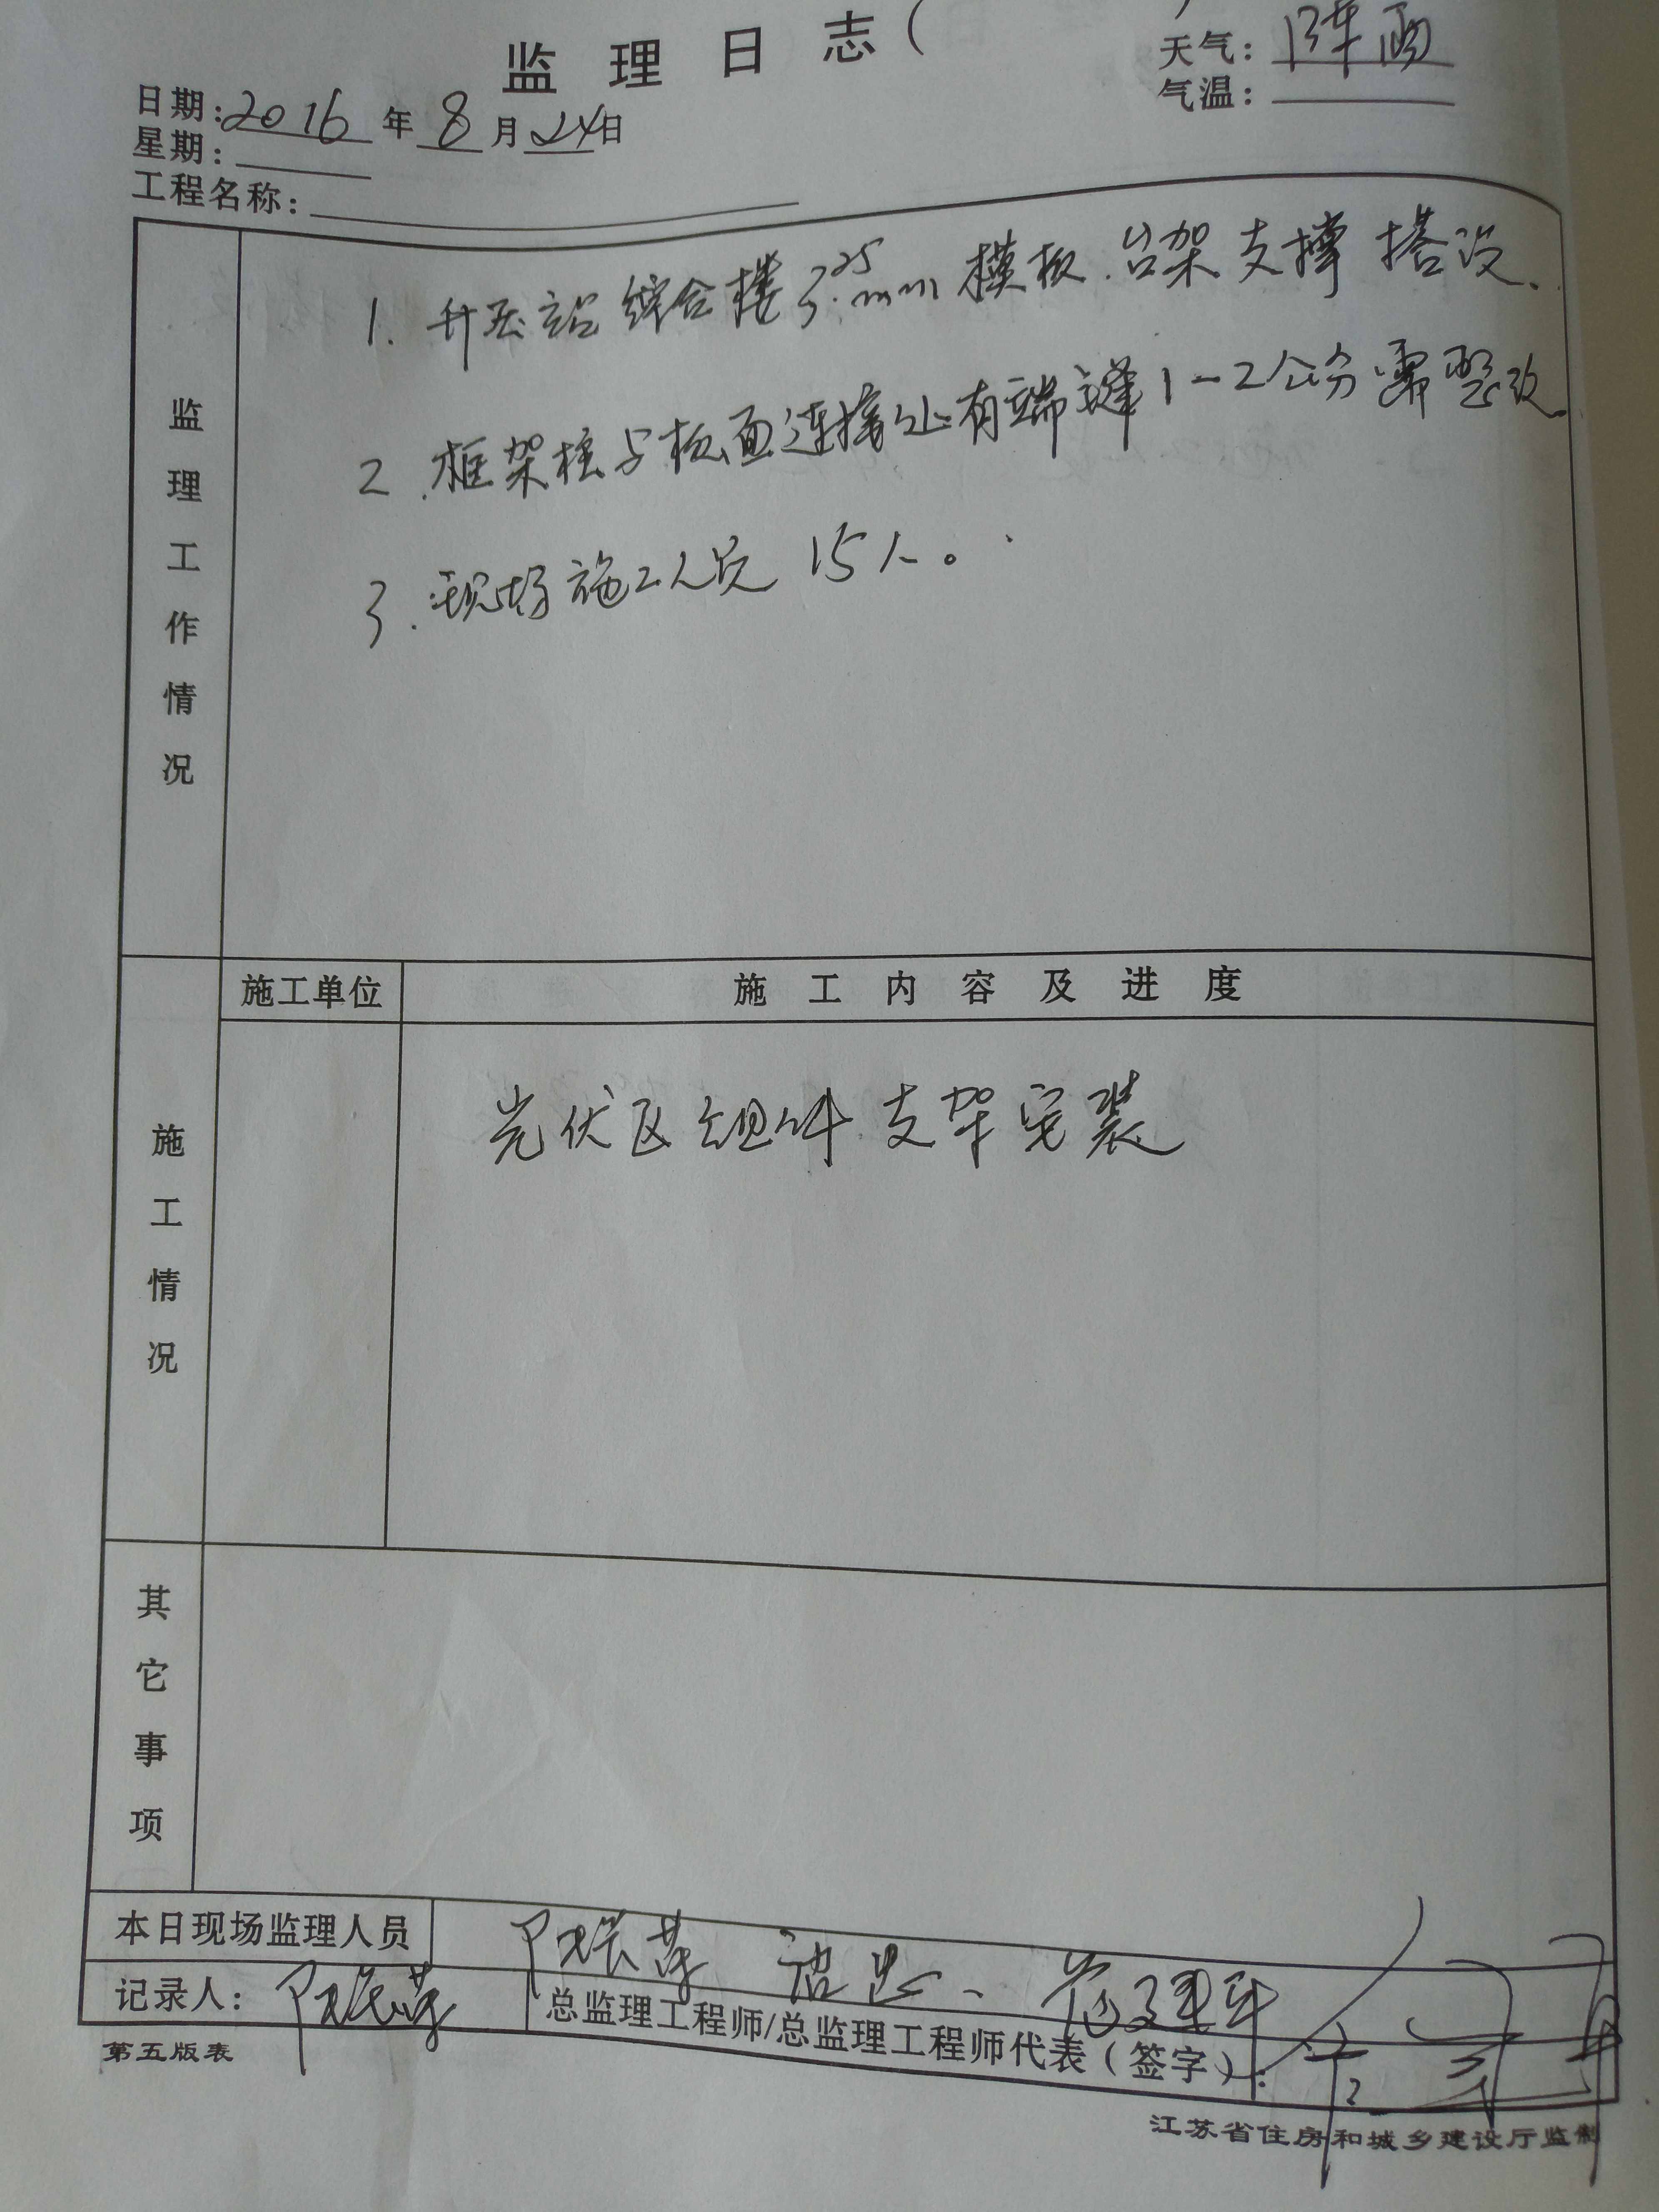 监理日志(
天气：阵雨
气温：
日期：2016年8月24日
星期：
工程名称：
监理工作情况
1. 升压站综合楼3.25mm模板.台架支撑搭设.
2. 框架柱与板面连接处有端缝1-2公分需整改.
3. 现场施工人员15人。
施工情况
施工单位
施工内容及进度
光伏区组件支架安装
其它事项
本日现场监理人员
记录人：
总监理工程师/总监理工程师代表（签字）：
第五版表
江苏省住房和城乡建设厅监制